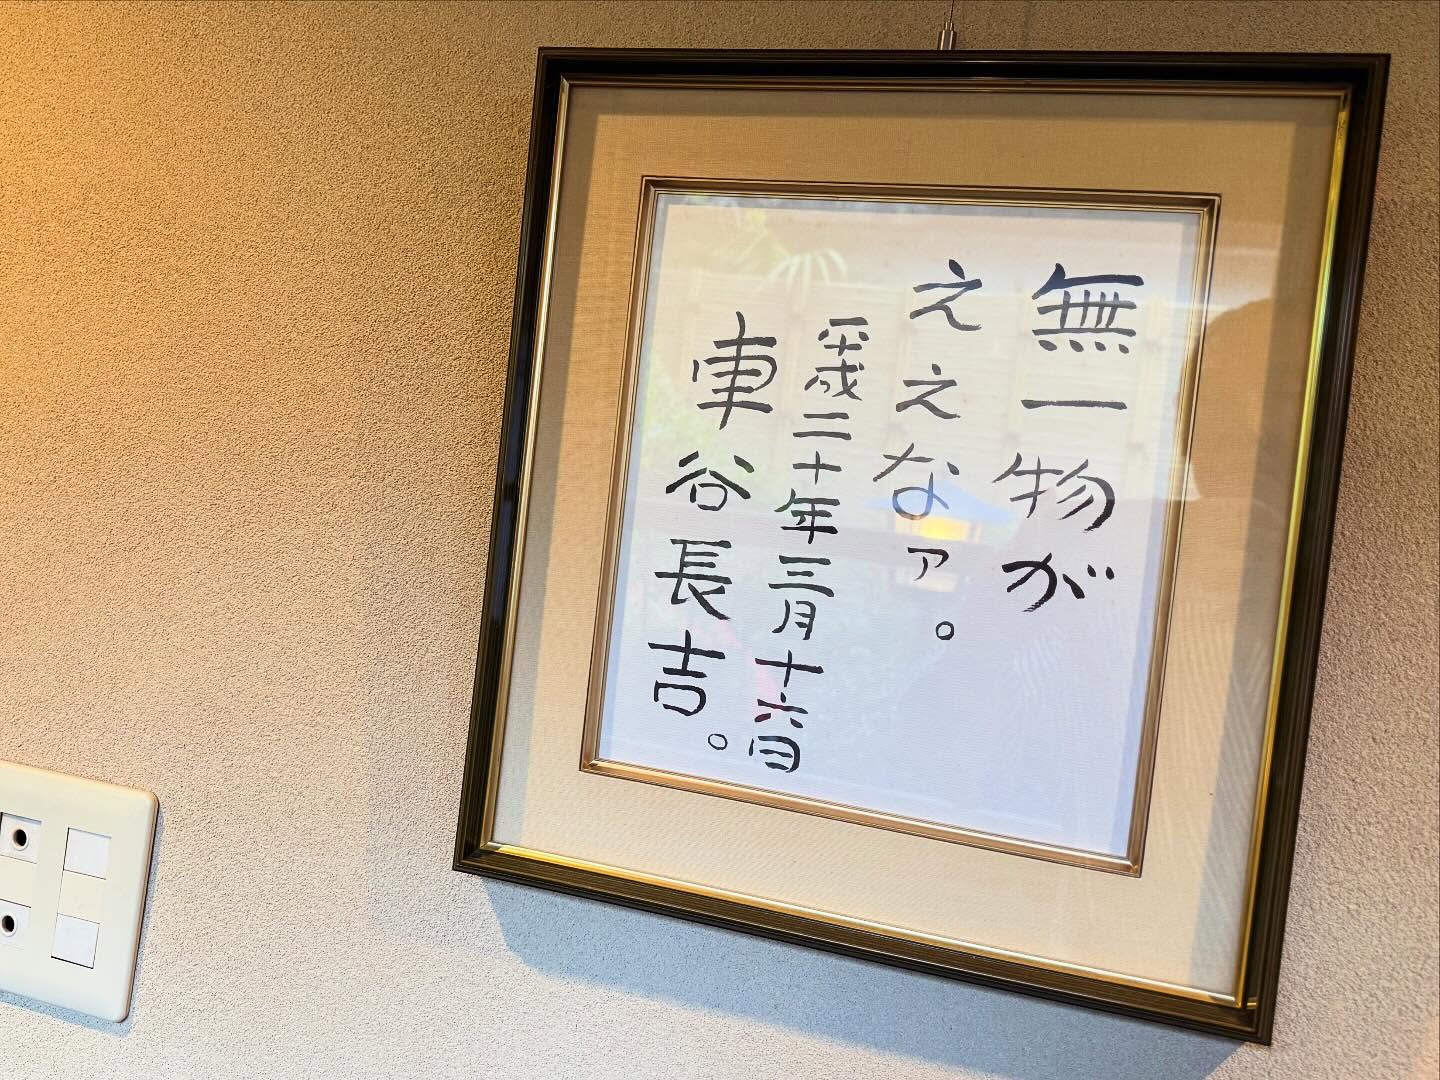 無一物が
ええなァ。
平成二十年三月十六日
車谷長吉。